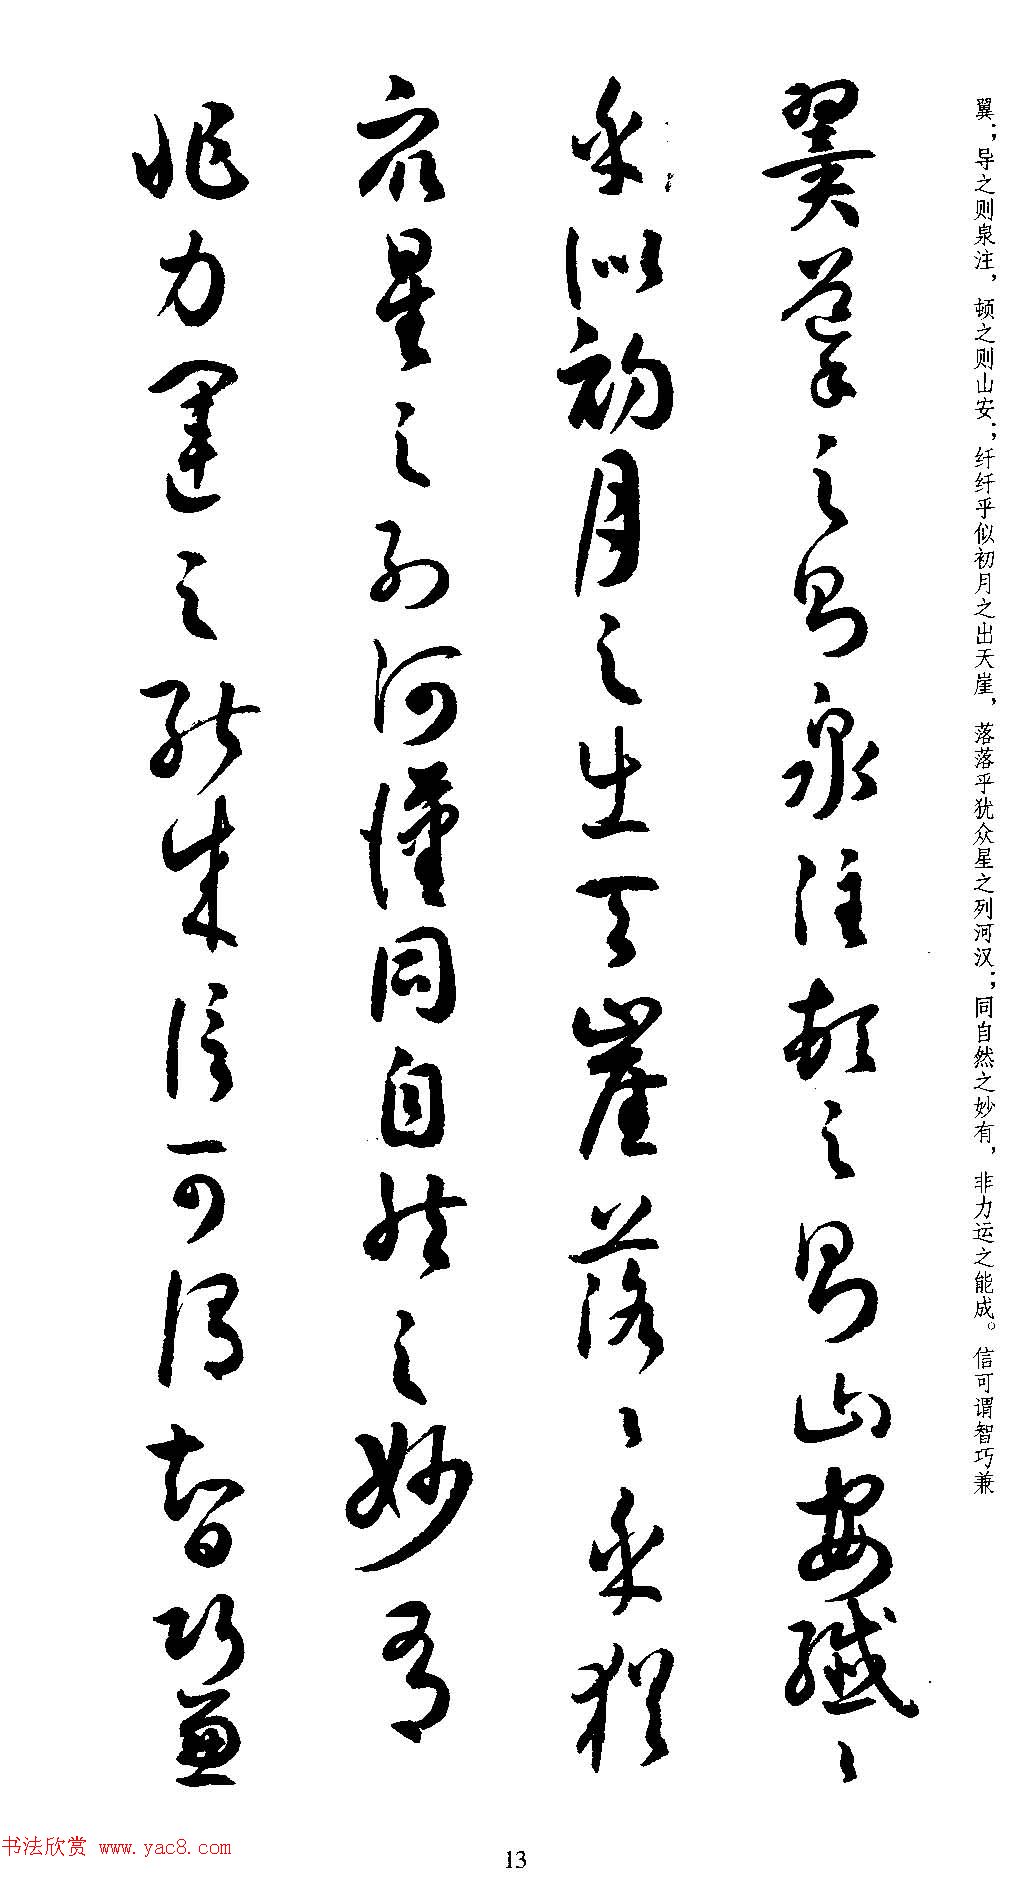 翼；导之则泉注，顿之则山安；纤纤乎似初月之出天崖，落落乎犹众星之列河汉；同自然之妙有，非力运之能成。信可谓智巧兼
翼導之則泉注頓之則山安纖〻
乎似初月之出天崖落〻乎猶
衆星之列河漢同自然之妙有
非力運之能成信可謂智巧兼
书法欣赏 www.yac8.com
13